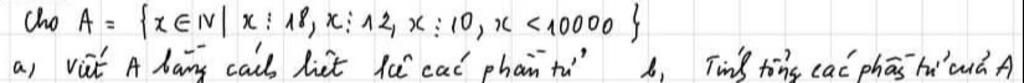 Cho A = {x ∈ N | x ⋮ 18, x ⋮ 12, x ⋮ 10, x < 10000 }
a, viết A bằng cách liệt kê các phần tử b, Tính tổng các phần tử của A